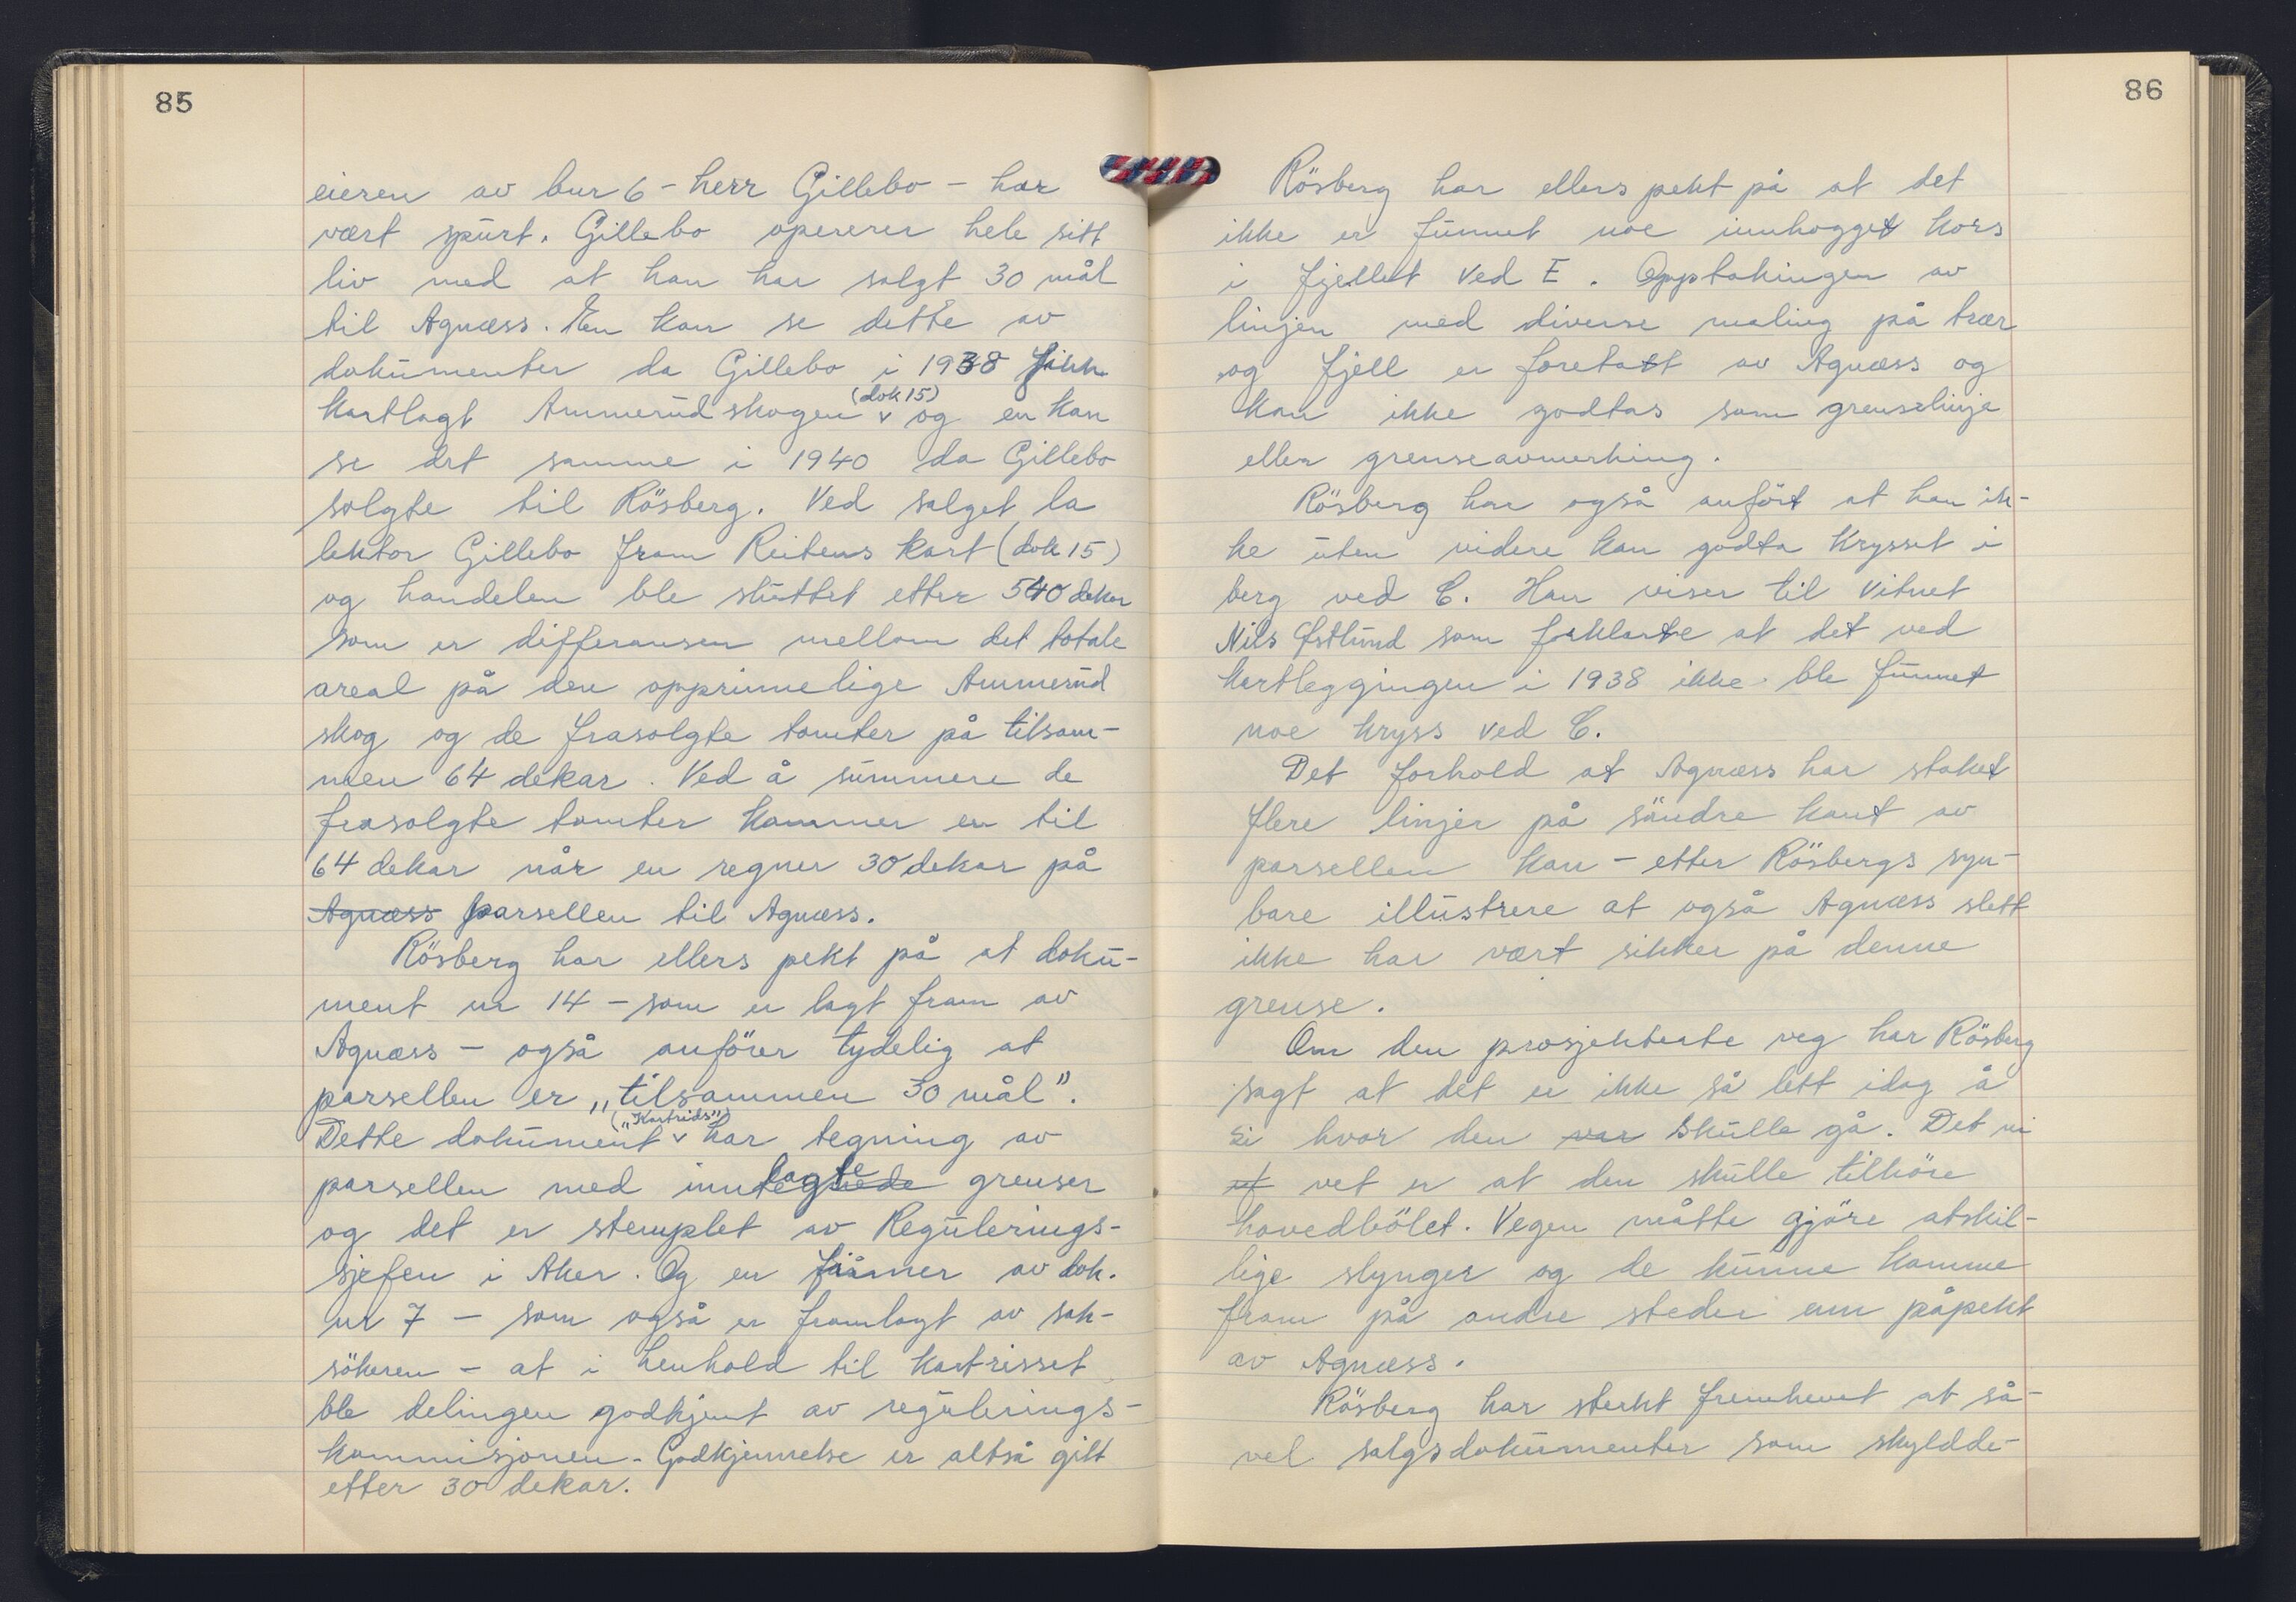 85
eieren av bnr 6 - herr Gillebo - har
vært spurt. Gillebo opererer hele sitt
liv med at han har solgt 30 mål
til Agnæss. En kan se dette av
dokumenter da Gillebo i 1938 fikk
(dok 15)
kartlagt Ammerudskogen v og en kan
se det samme i 1940 da Gillebo
solgte til Rösberg. Ved salget la
lektor Gillebo fram Reitens kart (dok 15)
og handelen ble sluttet etter 540 dekar
som er differansen mellom det totale
areal på den opprinnelige Ammerud
skog og de frasolgte tomter på tilsam-
men 64 dekar. Ved å summere de
frasolgte tomter kommer en til
64 dekar når en regner 30 dekar på
Agnæss parsellen til Agnæss.
Rösberg har ellers pekt på at doku-
ment nr 14 - som er lagt fram av
Agnæss - også anförer tydelig at
parsellen er „tilsammen 30 mål".
(„Kartrids")
Dette dokument v har tegning av
lagte
parsellen med inntegnede grenser
og det er stemplet av Regulerings-
sjefen i Aker. Og en finner av dok.
nr 7 - som også er framlagt av sak-
sökeren - at i henhold til kartrisset
ble delingen godkjent av regulerings-
kommisjonen. Godkjennelse er altså gitt
etter 30 dekar.
86
Rösberg har ellers pekt på at det
ikke er funnet noe innhogget kors
i fjellet ved E. Opptakingen av
linjen med diverse maling på trær
og fjell er foretatt av Agnæss og
kan ikke godtas som grenselinje
eller grenseavmerking.
Rösberg har også anfört at han ik-
ke uten videre kan godta krysset i
berg ved C. Han viser til vitnet
Nils Østlund som forklarte at det ved
kartleggingen i 1938 ikke ble funnet
noe kryss ved C.
Det forhold at Agnæss har staket
flere linjer på söndre kant av
parsellen kan - etter Rösbergs syn -
bare illustrere at også Agnæss slett
ikke har vært sikker på denne
grense.
Om den prosjekterte veg har Rösberg
sagt at det er ikke så lett idag å
si hvor den var skulle gå. Det vi
vet er at den skulle tilhöre
hovedbölet. Vegen måtte gjöre atskil-
lige slynger og de kunne komme
fram på andre steder enn påpekt
av Agnæss.
Rösberg har sterkt fremhevet at så-
vel salgsdokumenter som skyldde-